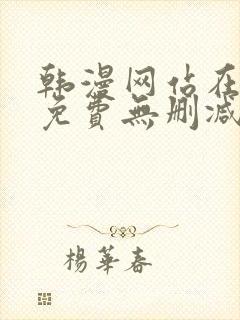 韩漫网佔在
免費無删减
楊華春